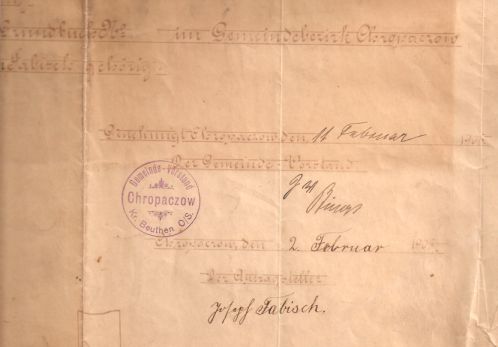 Grundbuch No. im Gemeindebezirk Chropaczow
Fabisch gehörig.
Genehmigt Chropaczow, den 11 Februar
Der Gemeinde-Vorstand
Gemeinde-Vorstand
Chropaczow
Kr. Beuthen O/S.
Chropaczow, den 2. Februar
Der Antragsteller
Joseph Fabisch.